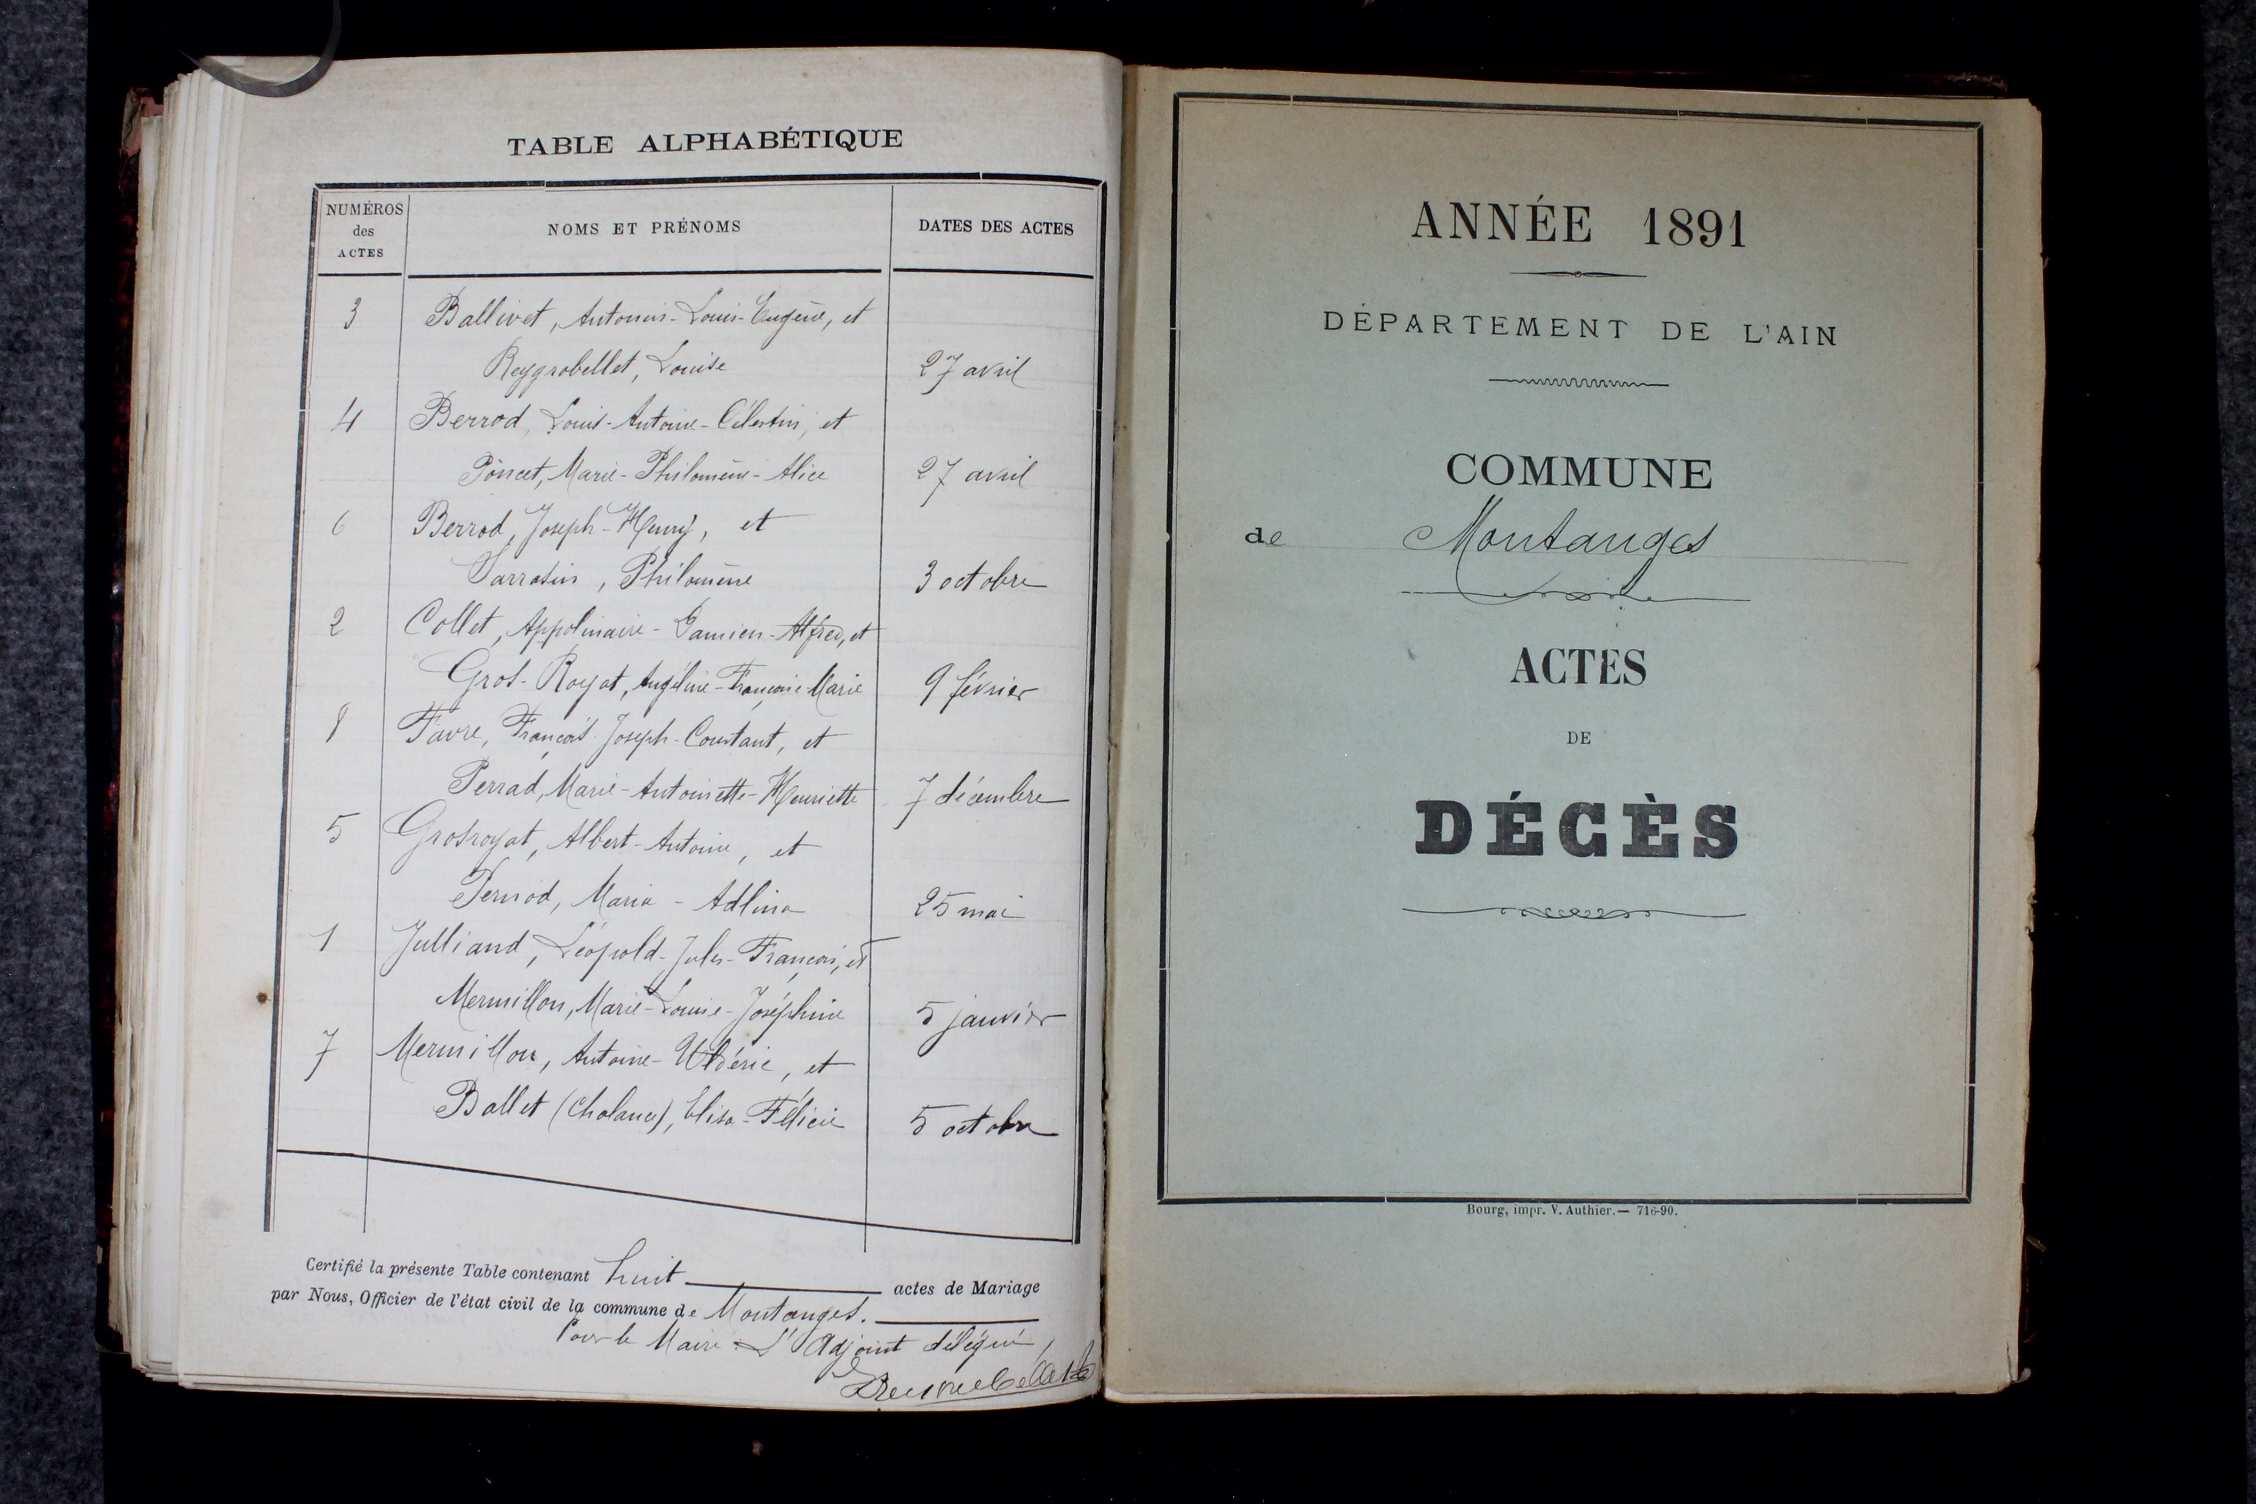 TABLE ALPHABÉTIQUE
NUMÉROS
des
ACTES
NOMS ET PRÉNOMS
DATES DES ACTES
3 Ballivet, Antonin-Louis-Eugène, et
Reygrobellet, Louise 27 avril
4 Berrod, Louis-Antoine-Célestin, et
Poncet, Marie-Philomène-Alice 27 avril
6 Berrod, Joseph-Henry, et
Sarrasin, Philomène 3 octobre
2 Collet, Appolinaire-Damien-Alfred, et
Gros-Royat, Angéline-Françoise Marie 9 février
8 Favre, François-Joseph-Constant, et
Perrad, Marie-Antoinette-Henriette 7 décembre
5 Grosroyat, Albert-Antoine, et
Pernod, Maria-Adlina 25 mai
1 Julliand, Léopold-Jules-François, et
Mermillon, Marie-Louise-Joséphine 5 janvier
7 Mermillon, Antoine-Uldéric, et
Ballet (Chalanes), Elisa-Félicie 5 octobre
Certifié la présente Table contenant huit actes de Mariage
par Nous, Officier de l'état civil de la commune de Montanges.
Pour le Maire L'Adjoint délégué,
ANNÉE 1891
DÉPARTEMENT DE L'AIN
COMMUNE
de Montanges
ACTES
DE
DÉCÈS
Bourg, impr. V. Authier.— 716-90.